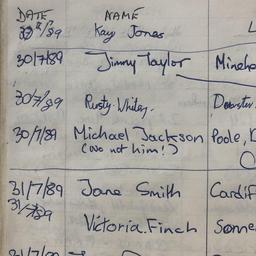 DATE NAME L
/89 Kay Jones
30/7/89 Jimmy Taylor Minehe
30/7/89 Rusty Whitey.
30/7/89 Michael Jackson Poole, D
(no not him!)
31/7/89 Jane Smith Cardif
31/7/89
Victoria Finch Some